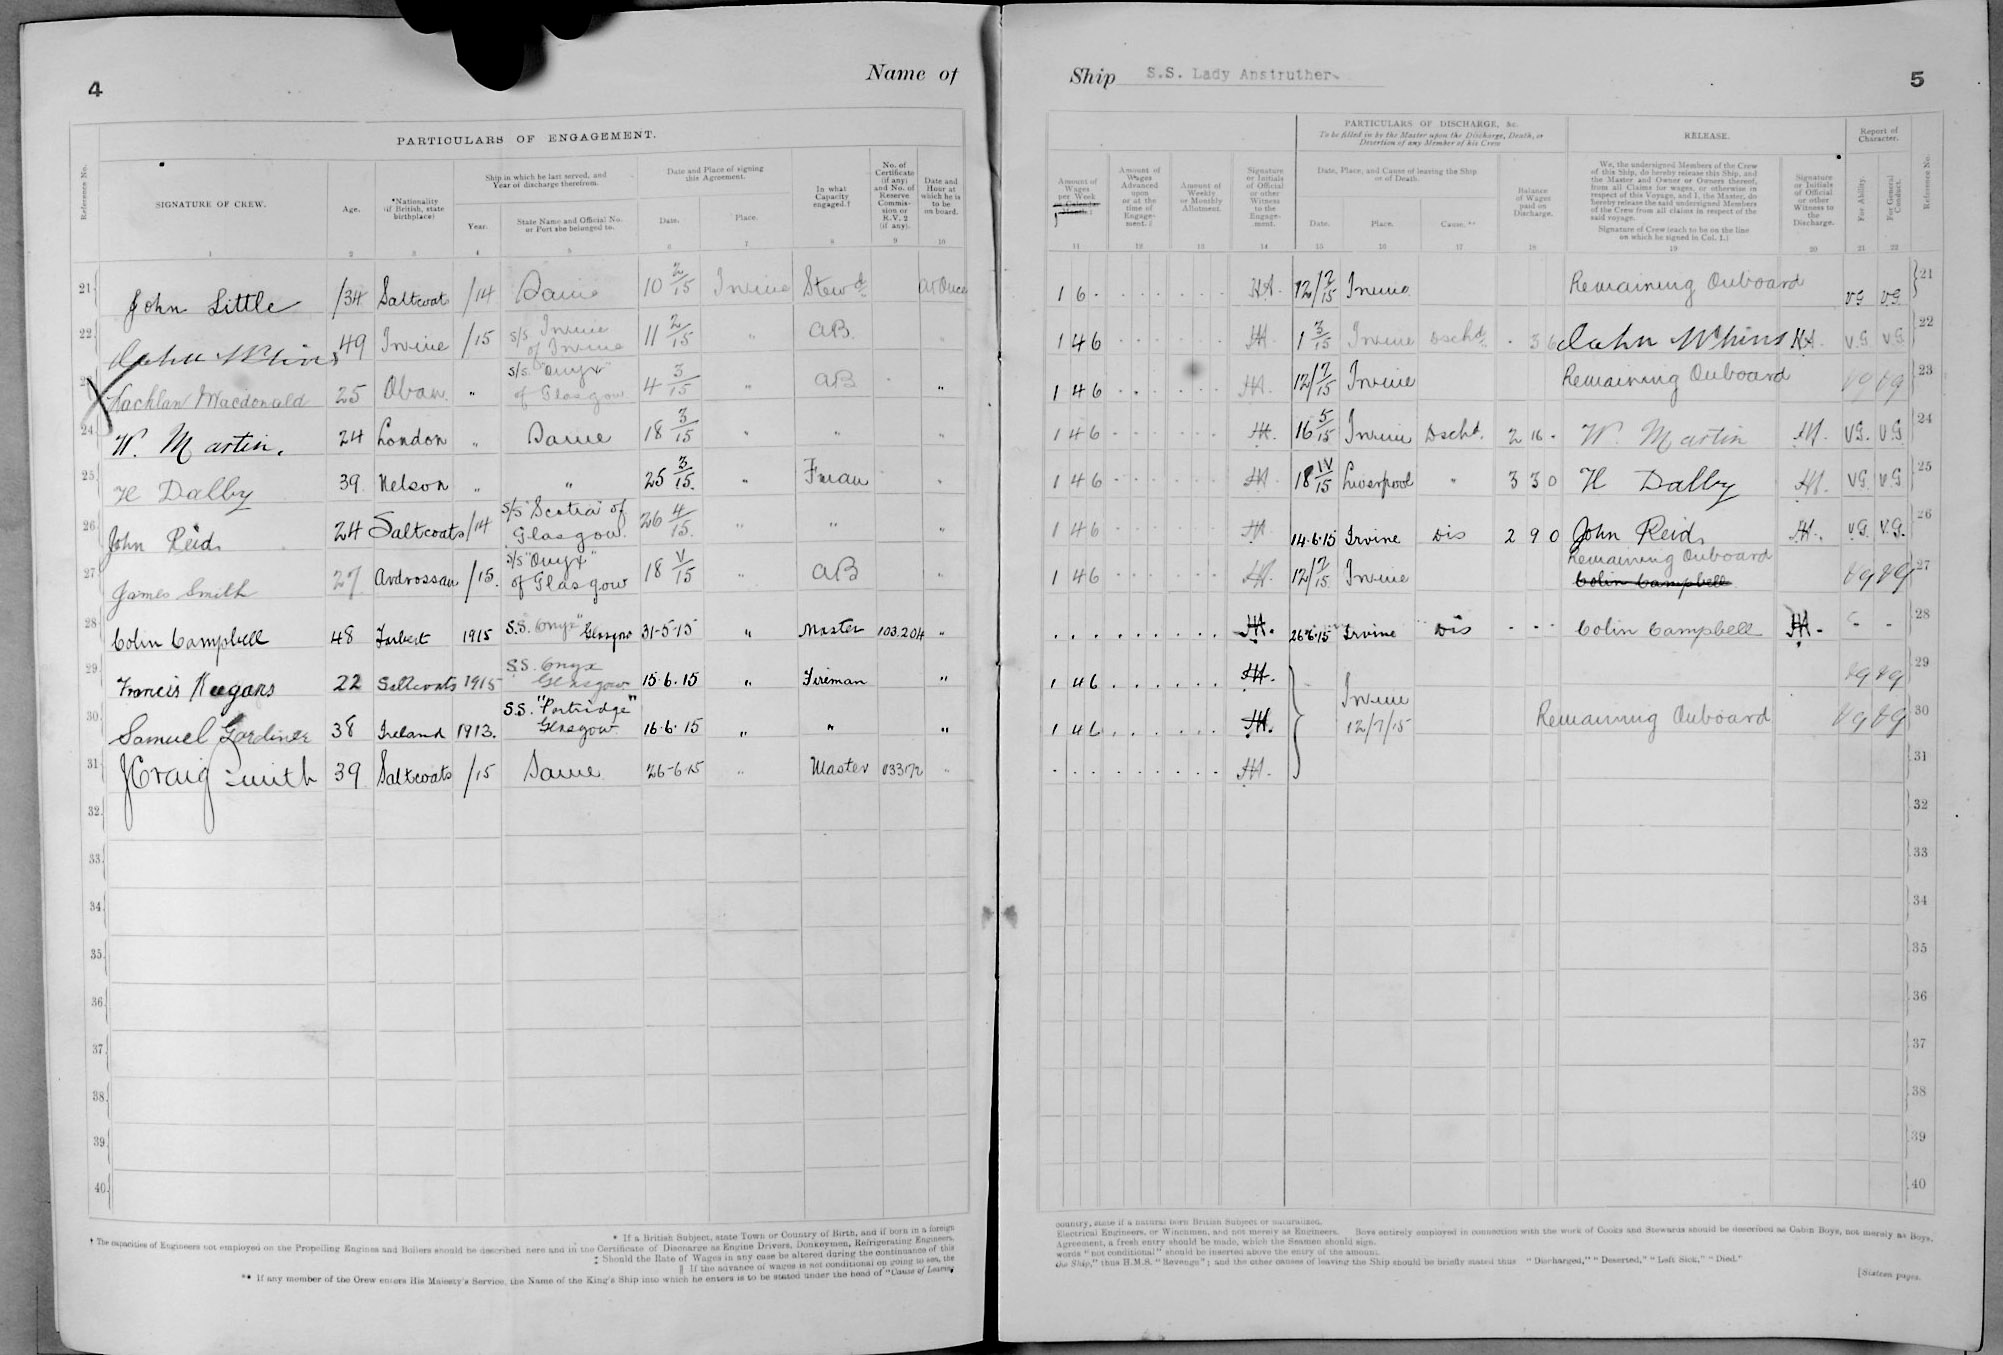 4
Name of
Ship S.S. Lady Anstruther.
5
PARTICULARS OF ENGAGEMENT.
Reference No.
SIGNATURE OF CREW.
1
Age.
2
*Nationality
(if British, state
birthplace)
3
Ship in which he last served, and
Year of discharge therefrom.
Year.
4
State Name and Official No.
or Port she belonged to.
5
Date and Place of signing
this Agreement.
Date.
6
Place.
7
In what
Capacity
engaged.†
8
No. of
Certificate
(if any)
and No. of
Reserve
Commis-
sion or
R.V. 2
(if any).
9
Date and
Hour at
which he is
to be
on board.
10
Amount of
Wages
per Week
or Calendar
Month
11
Amount of
Wages
Advanced
upon
or at the
time of
Engage-
ment.‖
12
Amount of
Weekly
or Monthly
Allotment.
13
Signature
or Initials
of Official
or other
Witness
to the
Engage-
ment.
14
PARTICULARS OF DISCHARGE, &c.
To be filled in by the Master upon the Discharge, Death, or
Desertion of any Member of his Crew
Date, Place, and Cause of leaving the Ship
or of Death.
Date.
15
Place.
16
Cause.**
17
Balance
of Wages
paid on
Discharge.
18
RELEASE.
We, the undersigned Members of the Crew
of this Ship, do hereby release this Ship, and
the Master and Owner or Owners thereof,
from all Claims for wages, or otherwise in
respect of this Voyage, and I, the Master, do
hereby release the said undersigned Members
of the Crew from all claims in respect of the
said voyage.
Signature of Crew (each to be on the line
on which he signed in Col. 1.)
19
Signature
or Initials
of Official
or other
Witness to
the
Discharge.
20
Report of
Character.
For Ability.
21
For General
Conduct.
22
Reference No.
21 John Little 34 Saltcoats /14 Same 10 2/15 Irvine Stewd at Once 1 6 - HA. 12/7/15 Irvine Remaining Onboard VG VG 21
22 John 49 Irvine /15 s/s Irvine of Irvine 11 2/15 " AB " 1 4 6 HA. 1 3/15 Irvine Dschd. - 3 6 John HA. V.G. V.G. 22
23 Lachlan Macdonald 25 Oban " s/s "Onyx" of Glasgow 4 3/15 " AB " 1 4 6 HA. 12/7/15 Irvine Remaining Onboard VG VG 23
24 W. Martin. 24 London " Same 18 3/15 " " " 1 4 6 HA. 16 5/15 Irvine Dschd. 2 16 - W. Martin HA. VG. V.G 24
25 H Dalby 39 Nelson " " 25 3/15. " Fman " 1 4 6 HA. 18 IV/15 Liverpool " 3 3 0 H Dalby HA. VG. V.G 25
26 John Reid. 24 Saltcoats /14 s/s "Scotia" of Glasgow. 26 4/15. " " " 1 4 6 HA. 14.6.15 Irvine Dis 2 9 0 John Reid, HA. VG. V.G. 26
27 James Smith 27 Ardrossan /15. s/s "Onyx" of Glasgow 18 V/15 " AB " 1 4 6 HA. 12/7/15 Irvine Remaining Onboard Colin Campbell VG VG 27
28 Colin Campbell 48 Tarbert 1915 S.S. "Onyx" Glasgow 31-5-15 " Master 103.204 " HA. 26.6.15 Irvine Dis - - - Colin Campbell HA. - - 28
29 Francis Keegans 22 Saltcoats 1915 S.S. Onyx Glasgow 15.6.15 " Fireman " 1 4 6 HA. VG VG 29
30 Samuel Gardiner 38 Ireland 1913. S.S. "Partridge" Glasgow 16.6.15 " " " 1 4 6 HA. Irvine 12/7/15 Remaining Onboard VG VG 30
31 J Craig Smith 39 Saltcoats /15 Same 26-6-15 " Master " HA. 31
32 32
33 33
34 34
35 35
36 36
37 37
38 38
39 39
40 40
* If a British Subject, state Town or Country of Birth, and if born in a foreign
country, state if a natural born British Subject or naturalized.
† The capacities of Engineers not employed on the Propelling Engines and Boilers should be described here and in the Certificate of Discharge as Engine Drivers, Donkeymen, Refrigerating Engineers,
Electrical Engineers, or Winchmen, and not merely as Engineers. Boys entirely employed in connection with the work of Cooks and Stewards should be described as Cabin Boys, not merely as Boys.
‡ Should the Rate of Wages in any case be altered during the continuance of this
Agreement, a fresh entry should be made, which the Seamen should sign.
‖ If the advance of wages is not conditional on going to sea, the
words "not conditional" should be inserted above the entry of the amount.
** If any member of the Crew enters His Majesty's Service, the Name of the King's Ship into which he enters is to be stated under the head of "Cause of Leaving
the Ship," thus H.M.S. "Revenge"; and the other causes of leaving the Ship should be briefly stated thus "Discharged," "Deserted," "Left Sick," "Died."
[Sixteen pages.